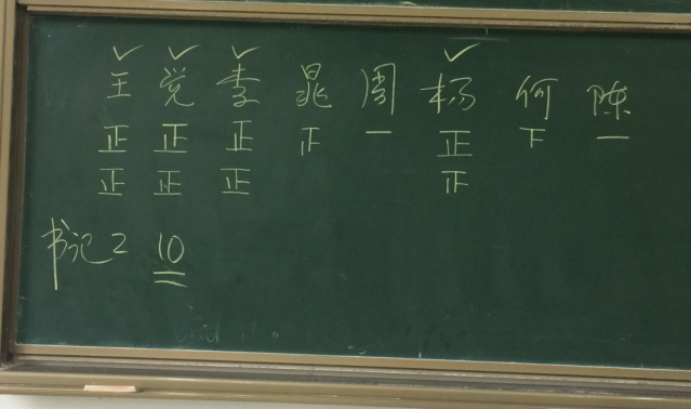 王 党 李 晁 周 杨 何 陈
正 正 正 正 一 正 下 一
正 正 正 正
书记 2 10